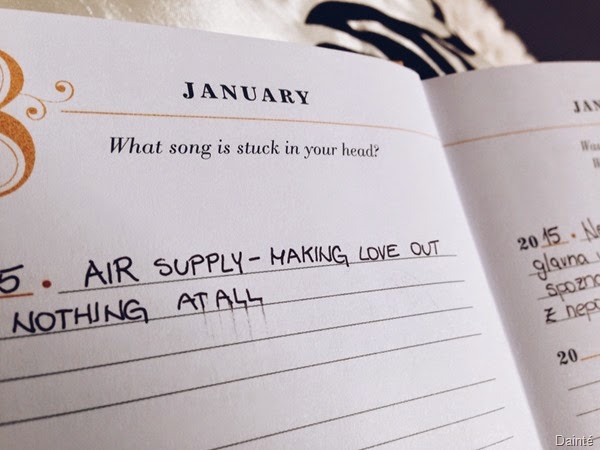 JANUARY
What song is stuck in your head?
5 • AIR SUPPLY – MAKING LOVE OUT
NOTHING AT ALL
JAN
2015 •
glavna
spozna
z nepo
20
Dainté